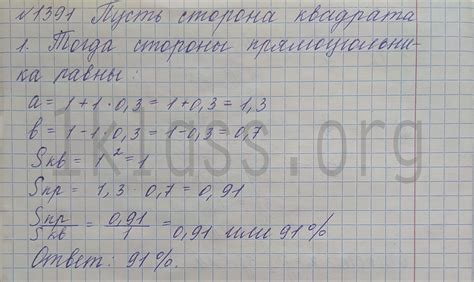 №1391 Пусть сторона квадрата
1. Тогда стороны прямоугольни-
ка равны:
a = 1+1·0,3 = 1+0,3 = 1,3
b = 1-1·0,3 = 1-0,3 = 0,7
Sкв = 1² = 1
Sпр = 1,3 · 0,7 = 0,91
Sпр/Sкв = 0,91/1 = 0,91 или 91%
Ответ: 91%.
1klass.org